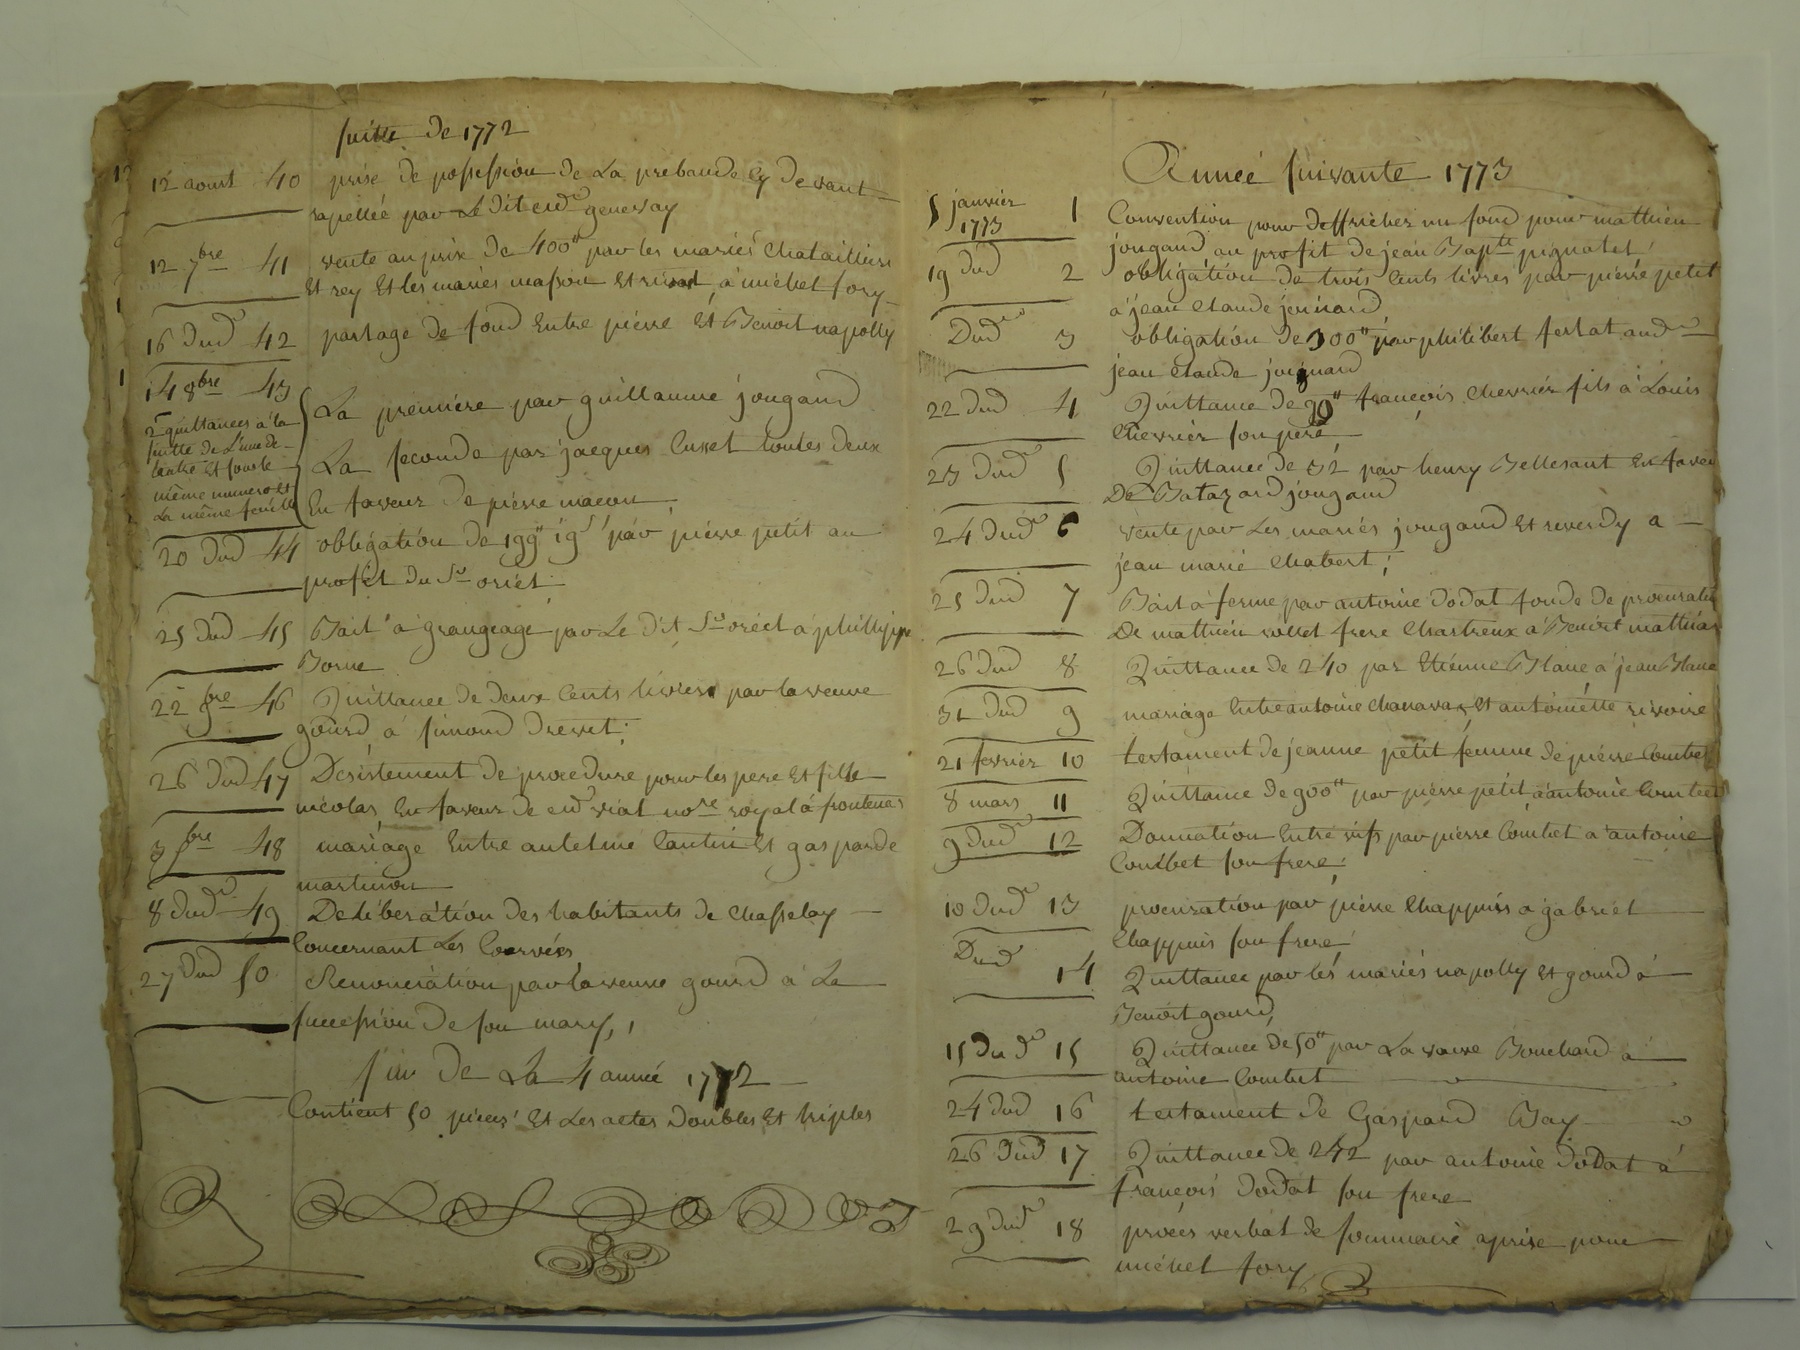 suitte de 1772
12 aoust 40 prise de possession de La prebande cy devant
rapellée par Le dit eccd genevay
12 7bre 41 vente au prix de 400tt par les mariés
Et rey Et les mariés masson Et à michel fory
16 dud 42 partage de fond Entre pierre Et Benoit napolly
14 8bre 43
2 quittances à la
suitte de L'une de
Lautre Et sous le
même numero Et
La même feuille
La premiere par guillaume jougand
La seconde par jacques Cusset toutes deux
En faveur de pierre macon
20 dud 44 obligation de 199tt 19s par pierre petit au
profit du Sr oriel
25 dud 45 Bail à grangeage par Le dit Sr oriel à phillippe
Borne
22 9bre 46 Quittance de deux Cents livres par la veuve
gourd à simond drevet;
26 dud 47 Desistement de procedure pour les pere Et fille
nicolas En faveur de viat nore royal à frontenas
3 Xbre 48 mariage Entre antelme Cantin Et gasparde
martinon
8 dud 49 Deliberation des habitants de Chasselay
Concernant Les Corvées
27 dud 50 Renonciation par la veuve gourd à La
succession de son mary,
fin de La 4 année 1772
Contient 50 pieces Et Les actes Doubles Et triples
Année suivante 1773
5 janvier
1773 1 Convention pour deffricher un fond pour matthieu
jougand au profit de jean Bapte pignatel
19 dud 2 obligation de trois Cents livres par pierre petit
à jean Claude joinard
Dud 3 obligation de 300tt par philibert ferlat aud
jean Claude joinard
22 dud 4 Quittance de 90tt françois Chevrier fils à Louis
Chevrier son pere
23 dud 5 Quittance de 52 par henry Bellesant En faveur
De Batazard jougand
24 dud 6 vente par Les mariés jougand Et reverdy a
jean marie Chabert;
25 dud 7 Bail à ferme par antoine dodat fondé de procuration
De matthieu rollet frere Chartreux à Benoit matthias
26 dud 8 Quittance de 240 par Etienne Blanc à jean Blanc
31 dud 9 mariage Entre antoine Chanavas Et antoinette rivoire
21 fevrier 10 testament de jeanne petit femme de pierre Combet
8 mars 11 Quittance de 900tt par pierre petit à antoine Combet
9 dud 12 Donnation Entre vifs par pierre Combet a antoine
Combet son frere;
10 dud 13 procuration par pierre Chappuis a gabriel
Chappuis son frere
Dud 14 Quittance par les mariés napolly Et gourd à
Benoit gourd,
15 du d 15 Quittance de 50tt par La veuve Bouchard à
antoine Combet
24 dud 16 testament de Gaspard Bay
26 dud 17 Quittance de 242 par antoine dodat à
françois dodat son frere
29 dud 18 procès verbal de sommaire aprise pour
michel fory